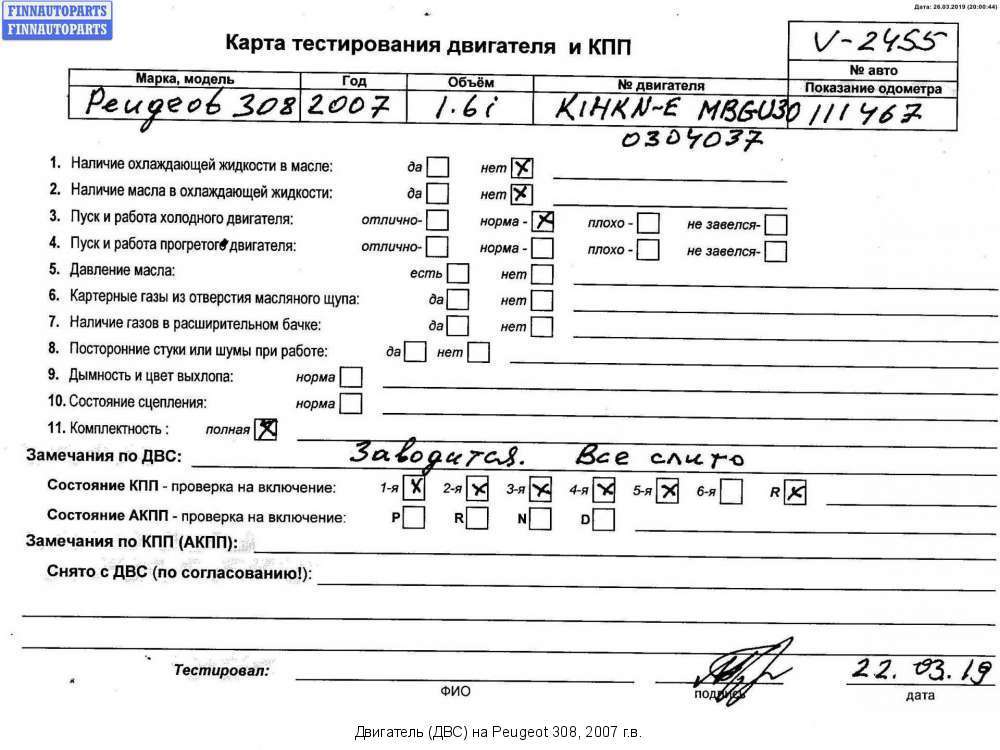 FINNAUTOPARTS
FINNAUTOPARTS
Дата: 26.03.2019 (20:00:44)
Карта тестирования двигателя и КПП
V-2455
№ авто
Марка, модель Год Объём № двигателя Показание одометра
Peugeot 308 2007 1.6i K1HKN-E MBGU30 111467
0304037
1. Наличие охлаждающей жидкости в масле: да нет X
2. Наличие масла в охлаждающей жидкости: да нет X
3. Пуск и работа холодного двигателя: отлично- норма - X плохо - не завелся-
4. Пуск и работа прогретого двигателя: отлично- норма - плохо - не завелся-
5. Давление масла: есть нет
6. Картерные газы из отверстия масляного щупа: да нет
7. Наличие газов в расширительном бачке: да нет
8. Посторонние стуки или шумы при работе: да нет
9. Дымность и цвет выхлопа: норма
10. Состояние сцепления: норма
11. Комплектность : полная X
Замечания по ДВС: Заводится. Все слито
Состояние КПП - проверка на включение: 1-я X 2-я X 3-я X 4-я X 5-я X 6-я R X
Состояние АКПП - проверка на включение: P R N D
Замечания по КПП (АКПП):
Снято с ДВС (по согласованию!):
Тестировал: 22.03.19
ФИО подпись дата
Двигатель (ДВС) на Peugeot 308, 2007 г.в.